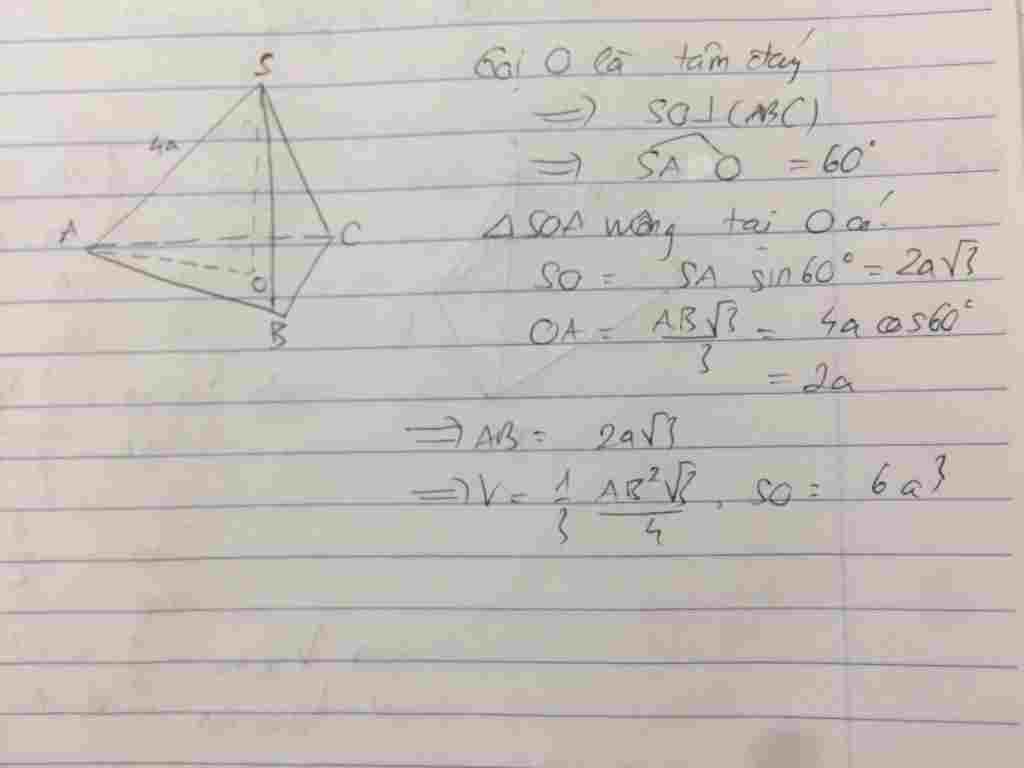 S
4a
A
C
O
B
Gọi O là tâm đáy
=> SO⊥(ABC)
=> SAO = 60°
ΔSOA vuông tại O có:
SO = SA sin60° = 2a√3
OA = AB√3/3 = 4a cos60°
= 2a
=> AB = 2a√3
=> V = 1/3 AB²√3/4 . SO = 6a³